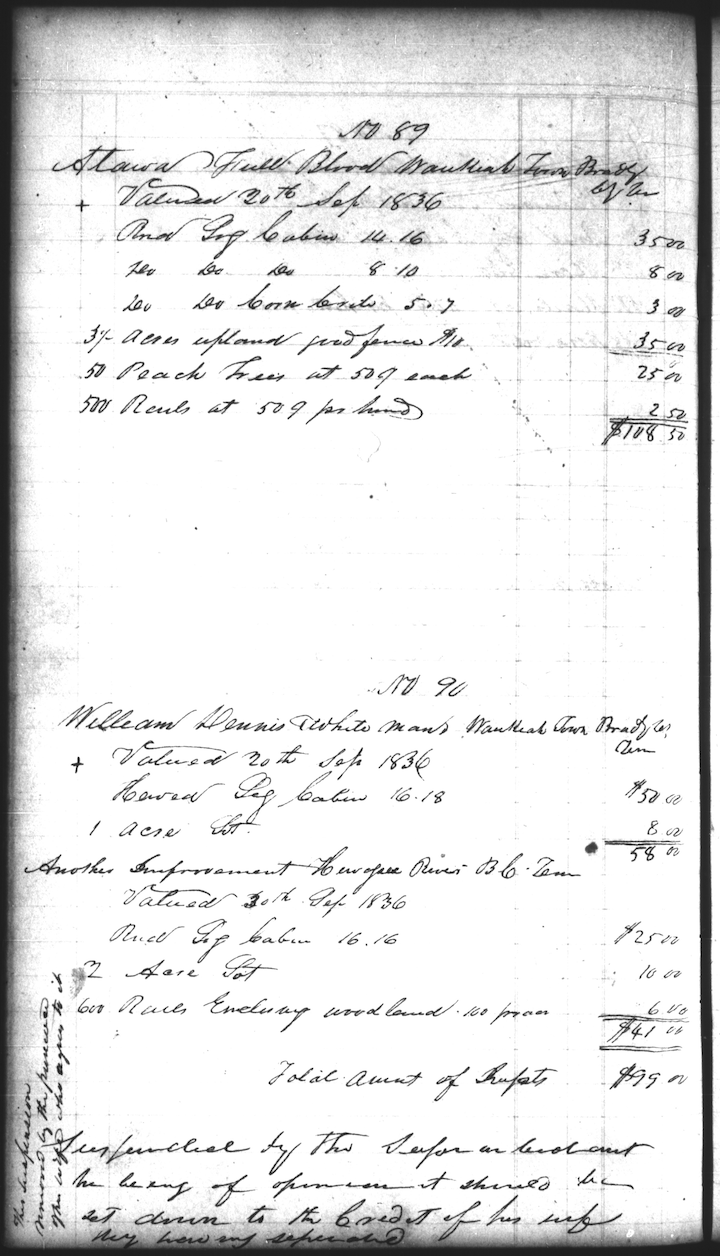 No 89
Atawa Full Blood Waukeah Town Brady
Cy Ten
+ Valued 20th Sep 1836
Rnd Log Cabin 14.16 35 00
Do Do Do 8.10 8 00
Do Do Corn Crib 5.7 3 00
3½ Acres upland good fence $10 35 00
50 Peach Trees at 50¢ each 25 00
500 Rails at 50¢ pr hund 2 50
$108 50
No 90
William Dennis White man Waukeah Town Brady Co
Ten
+ Valued 20th Sep 1836
Hewed Log Cabin 16.18 $50 00
1 Acre Lot 8 00
58 00
Another Improvement River B C Ten
Valued 30th Sep 1836
Rnd Log Cabin 16.16 $25 00
2 Acre Lot 10 00
600 Rails Enclosing woodland 100 6 00
$41 00
Total Amnt of $99 00
Suspended by the Superintendant
he being of opinion it should be
set down to the Credit of his wife
they having seperated
The suspension
removed by the
the wife who agrees to it